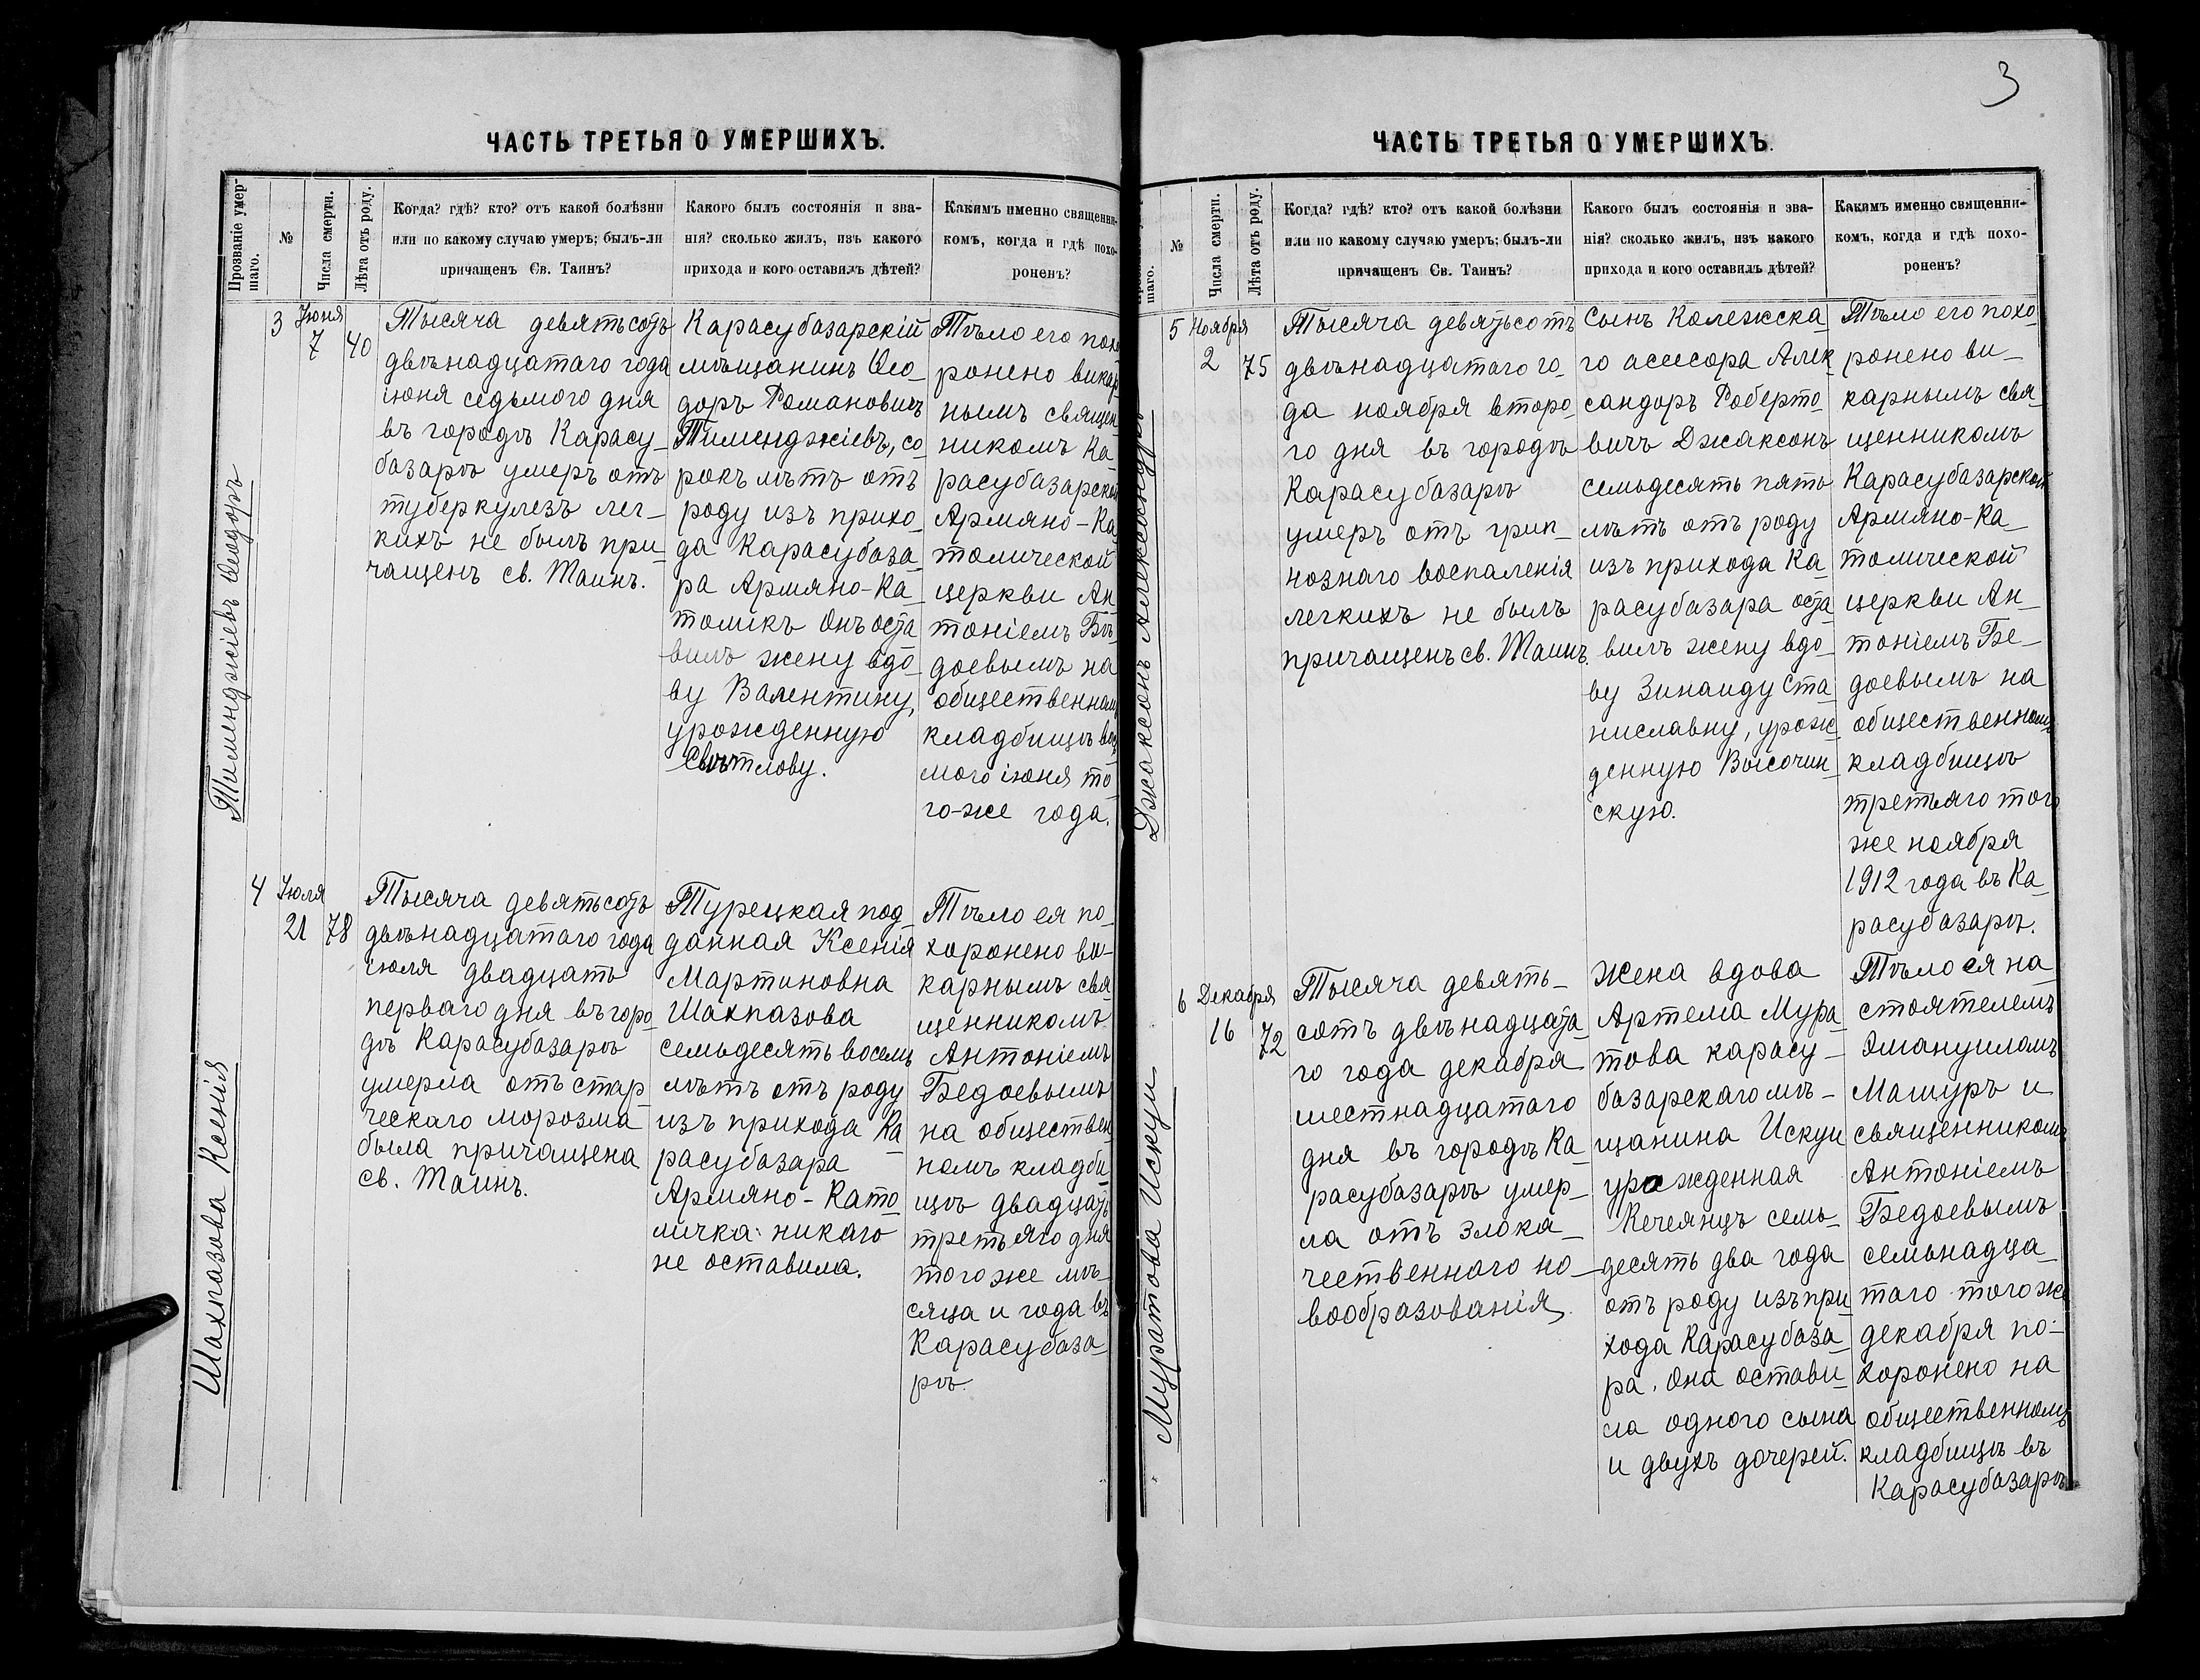 3
ЧАСТЬ ТРЕТЬЯ О УМЕРШИХЪ.
Прозваніе умер-
шаго.
№
Числа смерти.
Лѣта отъ роду.
Когда? гдѣ? кто? отъ какой болѣзни
или по какому случаю умеръ; былъ-ли
причащенъ Св. Таинъ?
Какого былъ состоянія и зва-
нія? сколько жилъ, изъ какого
прихода и кого оставилъ дѣтей?
Какимъ именно священни-
комъ, когда и гдѣ похо-
роненъ?
Тиминджіевъ Ѳеодоръ
3
Іюня
7
40
Тысяча девятьсотъ
двѣнадцатаго года
іюня седьмого дня
въ городѣ Карасу-
базарѣ умеръ отъ
туберкулезъ лег-
кихъ не былъ при-
чащенъ св. Таинъ.
Карасубазарскій
мѣщанинъ Ѳео-
доръ Романовичъ
Тиминджіевъ, со-
рокъ лѣтъ отъ
роду изъ прихо-
да Карасубаза-
ра Армяно-Ка-
толикъ Онъ оста-
вилъ жену вдо-
ву Валентину,
урожденную
Свѣтлову.
Тѣло его похо
ронено викар
нымъ священ
никомъ Ка-
расубазарской
Армяно-Ка
толической
церкви Ан
тоніемъ Бѣ
доевымъ на
общественном
кладбищѣ вось
мого іюня то
го-же года.
Шахпазова Ксенія
4
Іюля
21
78
Тысяча девятьсотъ
двѣнадцатаго года
іюля двадцать
перваго дня въ горо-
дѣ Карасубазарѣ
умерла отъ стар-
ческаго морозма
была причащена
св. Таинъ.
Турецкая под-
данная Ксенія
Мартиновна
Шахпазова
семьдесять восемь
лѣтъ отъ роду
изъ прихода Ка
расубазара
Армяно-Като
личка никаго
не оставила.
Тѣло ея по-
хоронено ви-
карнымъ свя-
щенникомъ
Антоніемъ
Бедоевымъ
на обществен
номъ кладби
щѣ двадцать
третьяго дня
тогоже мѣ-
сяца и года въ
Карасубаза-
рѣ.
ЧАСТЬ ТРЕТЬЯ О УМЕРШИХЪ.
шаго.
№
Числа смерти.
Лѣта отъ роду.
Когда? гдѣ? кто? отъ какой болѣзни
или по какому случаю умеръ; былъ-ли
причащенъ Св. Таинъ?
Какого былъ состоянія и зва-
нія? сколько жилъ, изъ какого
прихода и кого оставилъ дѣтей?
Какимъ именно священни-
комъ, когда и гдѣ похо-
роненъ?
Джаксонъ Александръ
5
Ноября
2
75
Тысяча девятьсотъ
двѣнадцатаго го-
да ноября второ-
го дня въ городѣ
Карасубазарѣ
умеръ отъ грип-
ознаго воспаленія
легкихъ не былъ
причащенъ св. Таинъ.
Сынъ Колежска-
го асесора Алек-
сандоръ Роберто-
вичъ Джаксонъ
семьдесять пять
лѣтъ отъ роду
изъ прихода Ка-
расубазара оста
вилъ жену вдо-
ву Зинаиду Ста
ниславну, урож-
денную Височин-
скую.
Тѣло его похо-
ронено ви-
карнымъ свя-
щенникомъ
Карасубазарской
Армяно-Ка-
толической
церкви Ан-
тоніемъ Бе-
доевымъ на
общественномъ
кладбищѣ
третьяго того
же ноября
1912 года въ Ка-
расубазарѣ.
Муратова Искуи
6
Декабря
16
72
Тысяча девять-
сотъ двѣнадцата
го года декабря
шестнадцатаго
дня въ городѣ Ка-
расубазарѣ умер-
ла отъ злока-
чественнаго но-
вообразованія.
Жена вдова
Артема Мура
това карасу-
базарскаго мѣ-
щанина Искуи
урожденная
Кечеянцъ семь-
десять два года
отъ роду изъ при
хода Карасубаза-
ра. Она остави-
ла одного сына
и двухъ дочерей.
Тѣло ея на-
стоятелемъ
Эмануиломъ
Машуръ и
священникомъ
Антоніемъ
Бедоевымъ
семьнадца-
таго того же
декабря по-
хоронено на
общественномъ
кладбищѣ въ
Карасубазарѣ